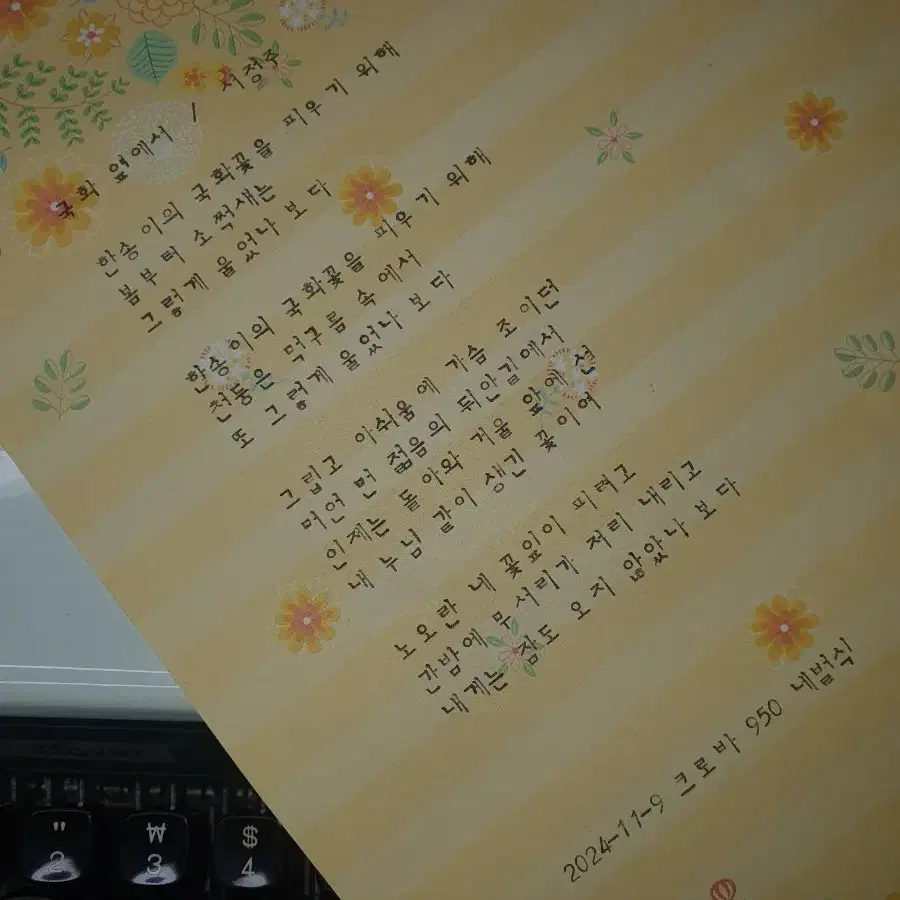 국화 옆에서 / 서정주
한송이의 국화꽃을 피우기 위해
봄부터 소쩍새는
그렇게 울었나 보다
한송이의 국화꽃을 피우기 위해
천둥은 먹구름 속에서
또 그렇게 울었나 보다
그립고 아쉬움에 가슴 조이던
머언 먼 젊음의 뒤안길에서
인제는 돌아와 거울 앞에 선
내 누님 같이 생긴 꽃이여
노오란 네 꽃잎이 피려고
간밤에 무서리가 저리 내리고
내게는 잠도 오지 않았나 보다
2024-11-9 크로바 950 네벌식
" ₩ $
2 3 4